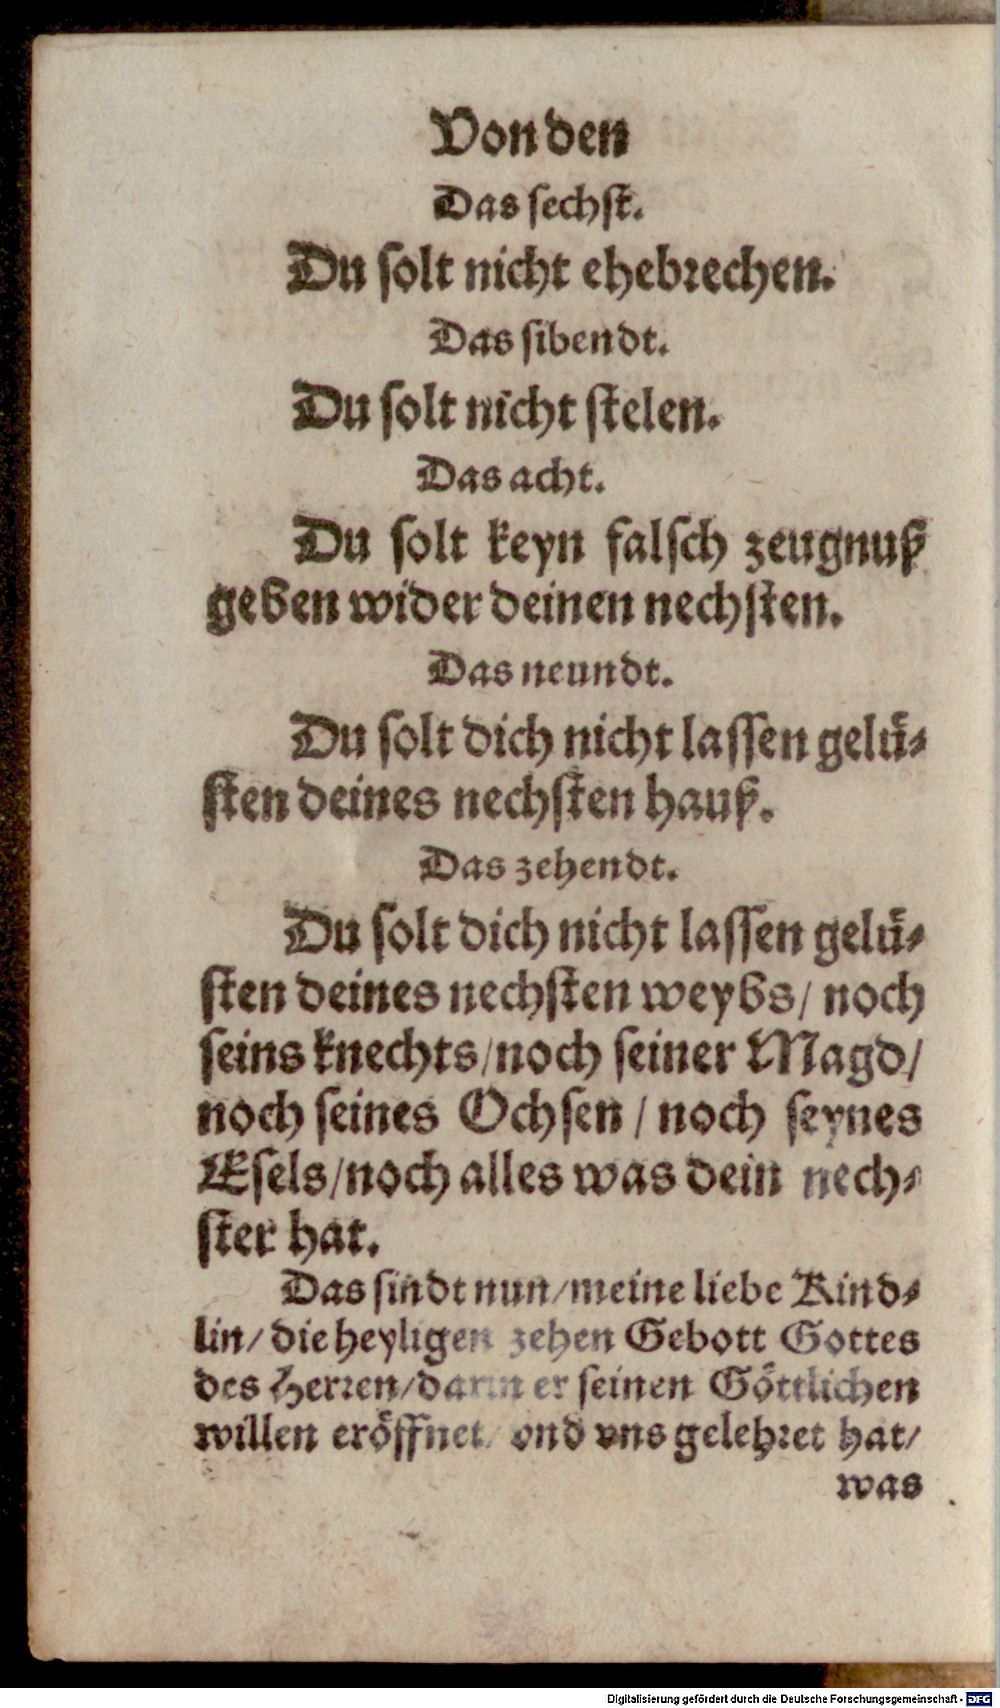 Von den
Das sechst.
Du solt nicht ehebrechen.
Das sibendt.
Du solt nicht stelen.
Das acht.
Du solt keyn falsch zeugnuß
geben wider deinen nechsten.
Das neundt.
Du solt dich nicht lassen gelü⸗
sten deines nechsten hauß.
Das zehendt.
Du solt dich nicht lassen gelü⸗
sten deines nechsten weybs/ noch
seins knechts/noch seiner Magd/
noch seines Ochsen / noch seynes
Esels/noch alles was dein nech⸗
ster hat.
Das sindt nun/meine liebe Kind⸗
lin/ die heyligen zehen Gebott Gottes
des Herren/darin er seinen Göttlichen
willen eröffnet/ vnd vns gelehret hat/
was
Digitalisierung gefördert durch die Deutsche Forschungsgemeinschaft - DFG